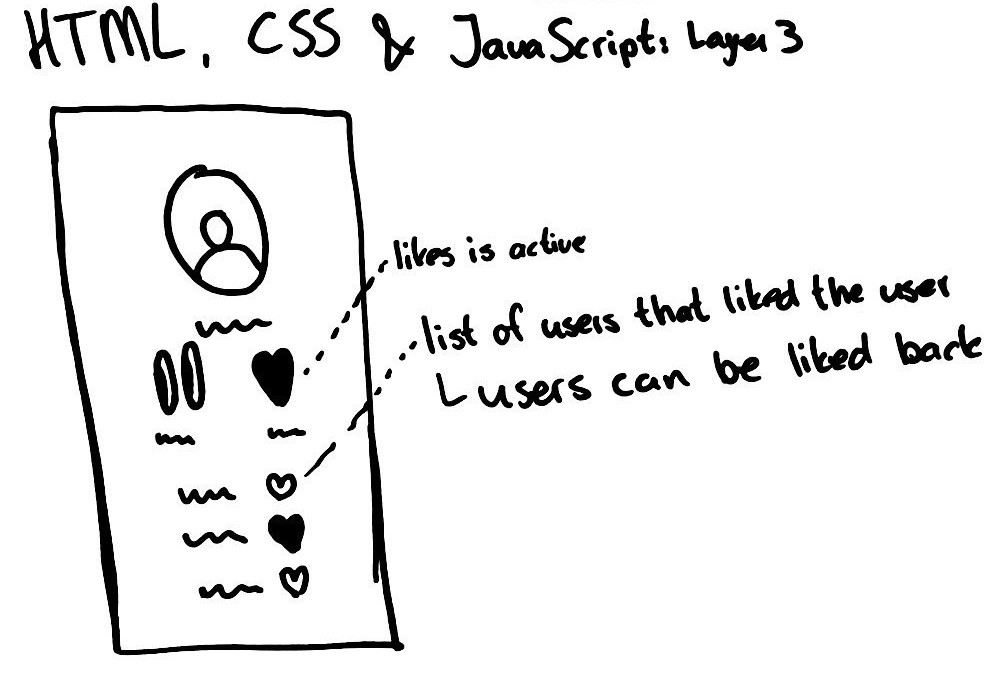 HTML, CSS & JavaScript: Layer 3
likes is active
list of users that liked the user
users can be liked back